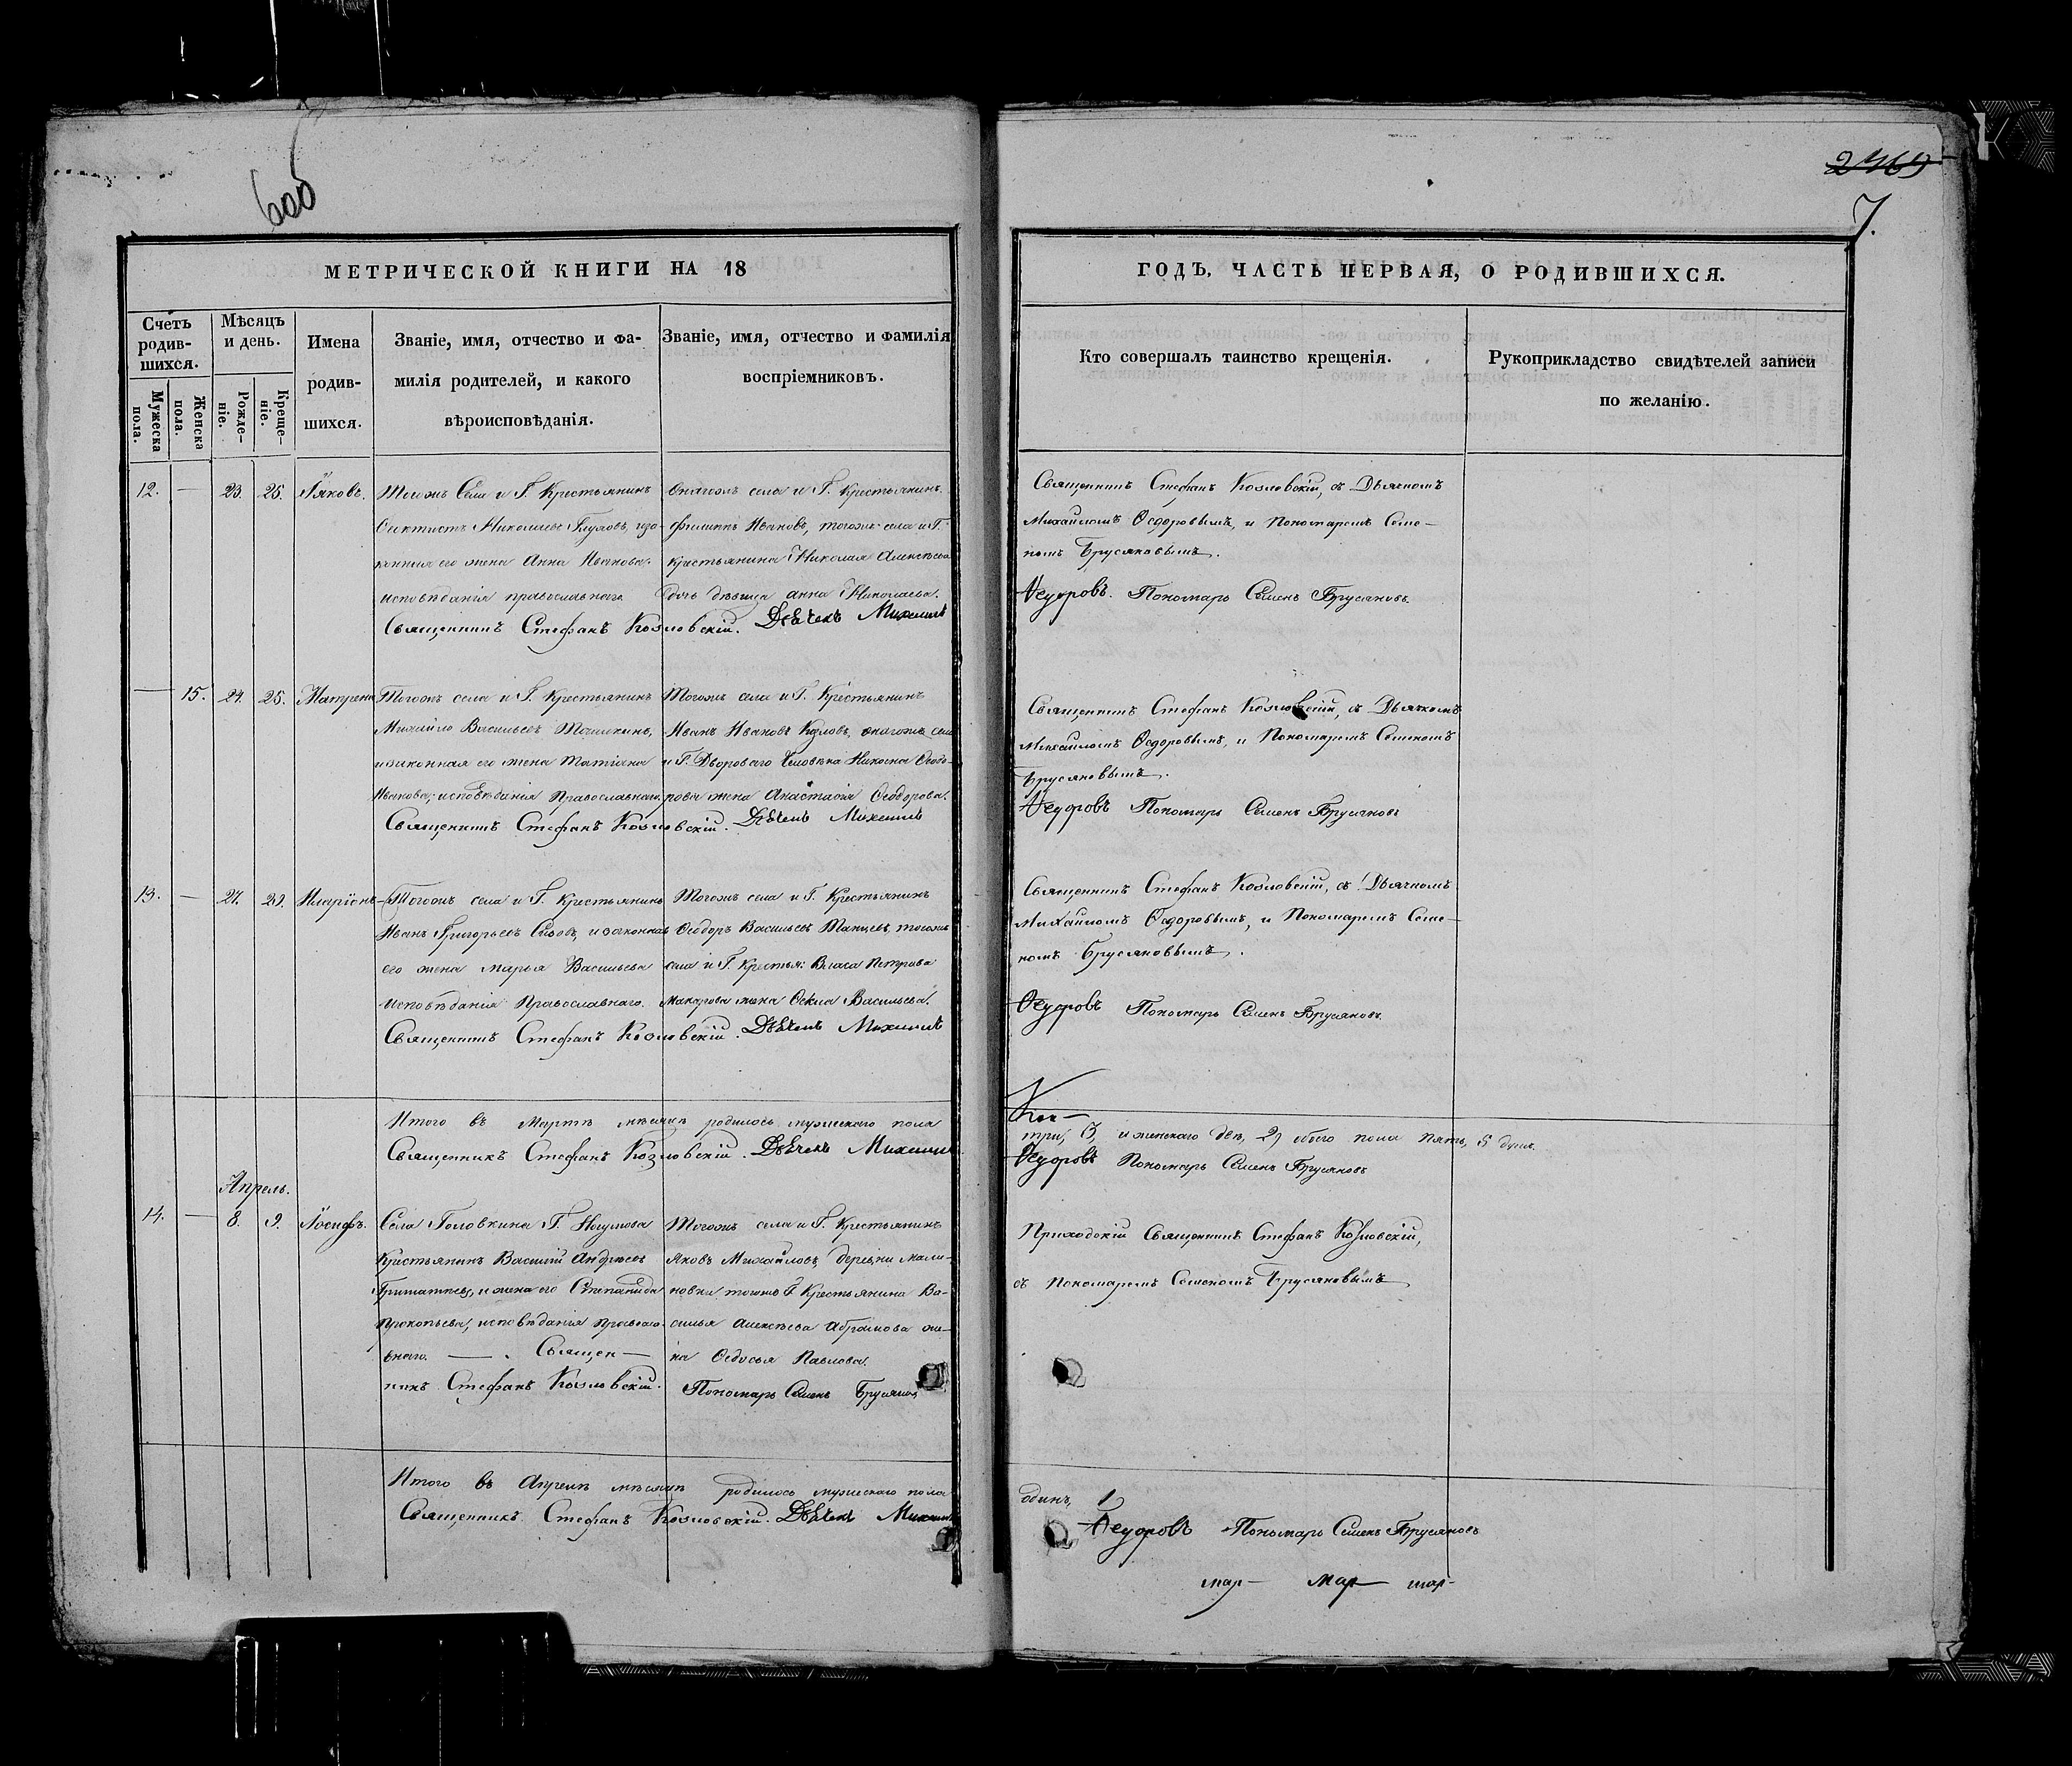 606
2469
7.
МЕТРИЧЕСКОЙ КНИГИ НА 18
ГОДЪ, ЧАСТЬ ПЕРВАЯ, О РОДИВШИХСЯ.
Счетъ родив-шихся.
Мужеска пола.
Женска пола.
Мѣсяцъ и день.
Рожде-ніе.
Креще-ніе.
Имена родив-шихся.
Званіе, имя, отчество и фа-
милія родителей, и какого
вѣроисповѣданія.
Званіе, имя, отчество и фамилія
воспріемниковъ.
Кто совершалъ таинство крещенія.
Рукоприкладство свидѣтелей записи
по желанію.
12. — 23. 25. Іяковъ.
Тогожъ Села и Г. Крестьянинъ
Ѳиктистъ Николаевъ
его жена Анна Иванова.
исповѣданія православнаго
села и Г. Крестьянинъ
филиппъ Ивановъ, тогожъ села и Г.
крестьянина Николая Алексѣева
дочь дѣвица анна Николаева.
Священникъ Стефанъ Козловскій. Дьячекъ Михаилъ
Священникъ Стефанъ Козловскій, съ Дьячкомъ
Михаиломъ Ѳедоровымъ, и Пономаремъ Семе-
номъ Брусяновымъ.
Ѳедоровъ. Пономарь Семенъ Брусяновъ.
— 15. 24. 25. Матрена
Тогожъ села и Г. Крестьянинъ
Михайло Васильевъ
изаконная его жена Татіана
Иванова; исповѣданія Православнаго.
Тогожъ села и Г. Крестьянинъ
Иванъ Ивановъ Козловъ, онагожъ села
и Г. Двороваго человѣка Никона Ѳедо-
рова жена Анастасія Ѳеодорова.
Священникъ Стефанъ Козловскій. Дьячекъ Михаилъ
Священникъ Стефанъ Козловскій, съ Дьячкомъ
Михаиломъ Ѳедоровымъ, и Пономаремъ Семеномъ
Брусяновымъ.
Ѳедоровъ Пономарь Семенъ Брусяновъ
13. — 27. 29. Иларіонъ
Тогожъ села и Г. Крестьянинъ
Иванъ Григорьевъ Сизовъ, изаконная
его жена марья Васильева
исповѣданія Православнаго.
Тогожъ села и Г. Крестьянинъ
Ѳеодоръ Васильевъ Танцевъ, тогожъ
села и Г. Крестья: Власа Петрова
Макарова жена Ѳекла Васильева.
Священникъ Стефанъ Козловскій. Дьячекъ Михаилъ
Священникъ Стефанъ Козловскій, съ Дьячкомъ
Михаиломъ Ѳедоровымъ, и Пономаремъ Семе-
номъ Брусяновымъ.
Ѳедоровъ Пономарь Семенъ Брусяновъ.
Итого въ Мартѣ мѣсяцѣ родилось мужескаго пола
три, 3, и женскаго двѣ, 2, обоего пола пять, 5 душъ.
Священникъ Стефанъ Козловскій. Дьячекъ Михаилъ
Ѳедоровъ Пономарь Семенъ Брусяновъ
Апрель.
14. — 8. 9. Іосифъ.
Села Головкина Г. Наумова
Крестьянинъ Василій Андреевъ
и жена его Степанида
Прокопьева, исповѣданія правосла-
внаго. — . Священ-
никъ Стефанъ Козловскій.
Тогожъ села и Г. Крестьянинъ
Яковъ Михайловъ, деревни мали-
новки тогожъ Г. Крестьянина Ва-
силья алексѣева абрамова же-
на Ѳедосья Павлова.
Пономарь Семенъ Брусяновъ
Приходскій Священникъ Стефанъ Козловскій,
съ Пономаремъ Семеномъ Брусяновымъ
Итого въ Апрелѣ мѣсяцѣ родилось мужескаго пола
одинъ, 1
Священникъ Стефанъ Козловскій. Дьячекъ Михаилъ
Ѳедоровъ Пономарь Семенъ Брусяновъ
мар- мар- мар-